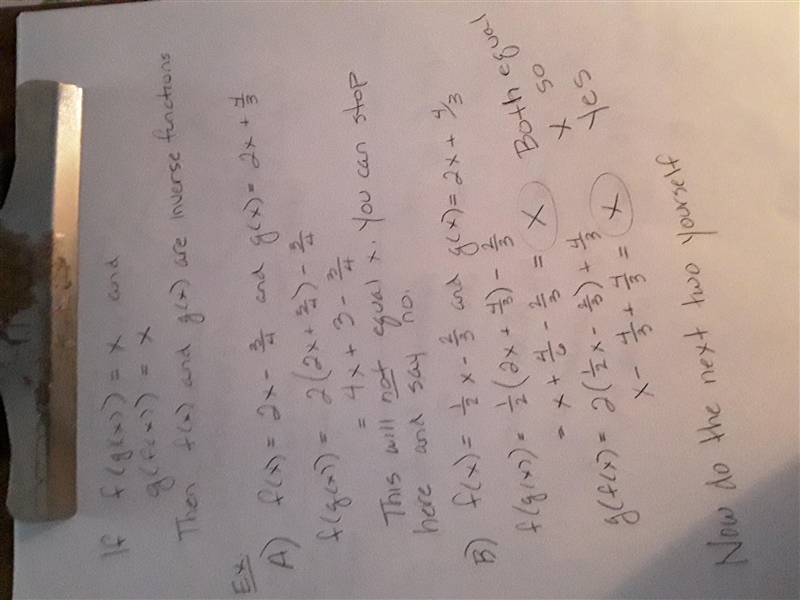 If f(g(x)) = x and
g(f(x)) = x
Then f(x) and g(x) are inverse functions
Ex.
A) f(x) = 2x - 3/4 and g(x) = 2x + 4/3
f(g(x)) = 2(2x + 3/4) - 3/4
= 4x + 3 - 3/4
This will not equal x. You can stop
here and say no.
B) f(x) = 1/2 x - 2/3 and g(x) = 2x + 4/3
f(g(x)) = 1/2 (2x + 4/3) - 2/3
= x + 4/6 - 2/3 = x
g(f(x)) = 2(1/2 x - 2/3) + 4/3
x - 4/3 + 4/3 = x
Both equal
x so
yes
Now do the next two yourself